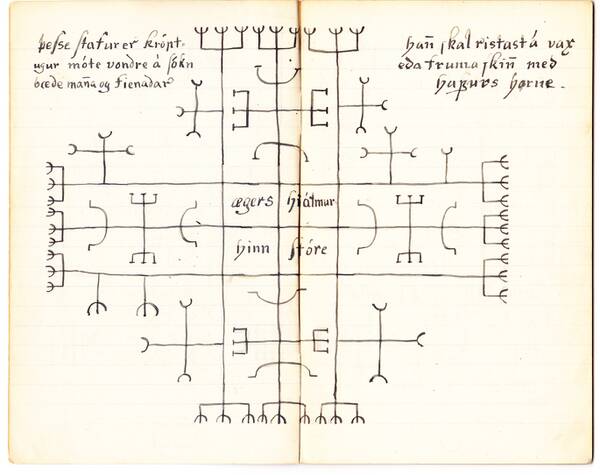 þesse stafur er krópt-
ugur móte vondre á sókn
bœde mañа og Fienadar
hañ skal ristast á vax
eda trumaskiñ med
hafurs horne.
ægers hiálmur
hinn stóre